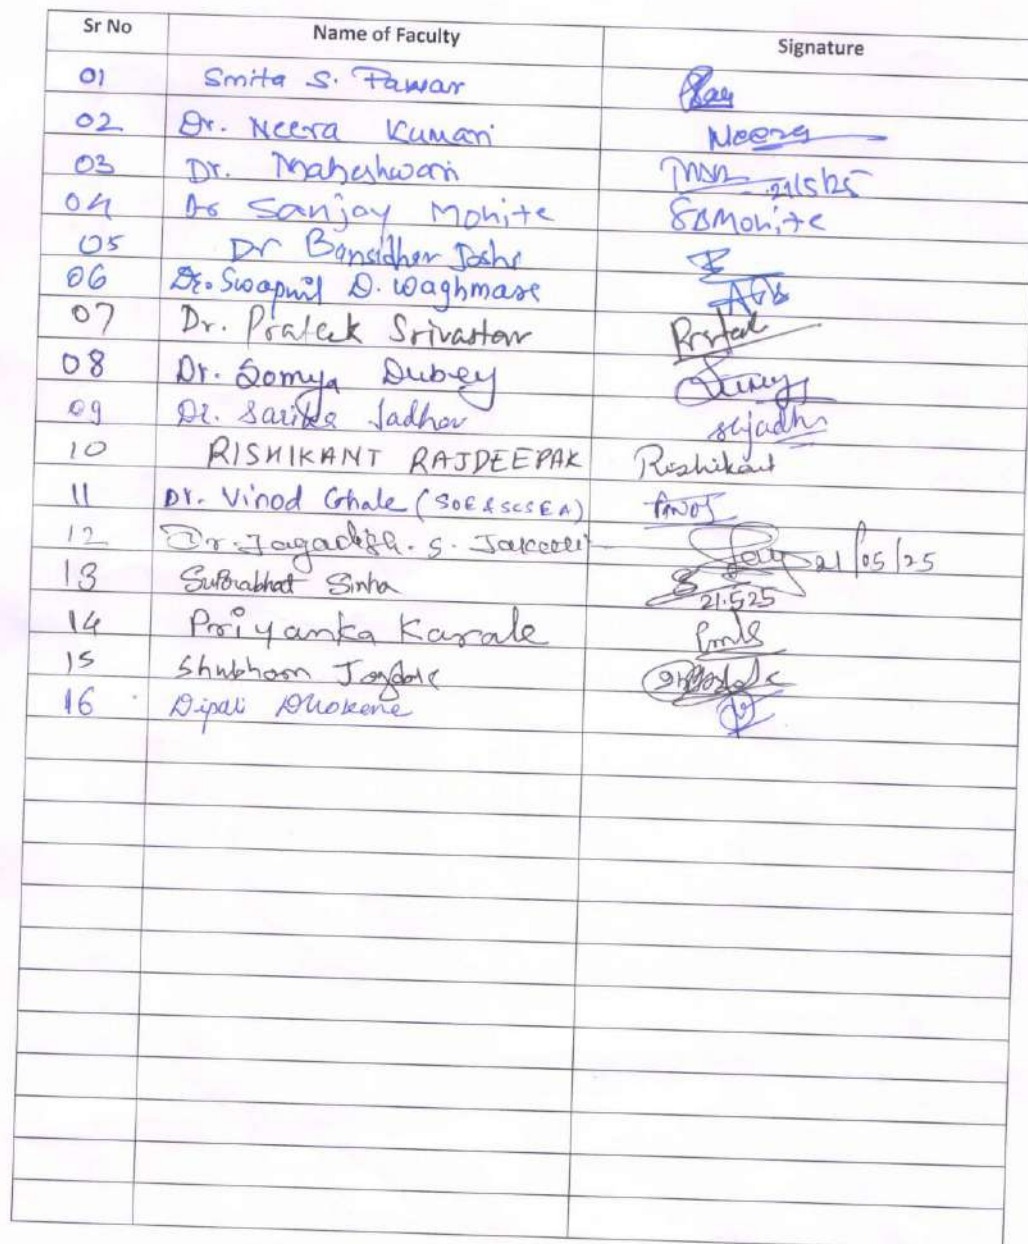 Sr No Name of Faculty Signature
01 Smita S. Pawar
02 Dr. Neera Kumari Neera
03 Dr. Maheshwari 21/5/25
04 Dr Sanjay Mohite SBMohite
05 Dr Bansidhar Joshi
06 Dr. Swapnil D. Waghmare
07 Dr. Prateek Srivastav
08 Dr. Somya Dubey
09 Dr. Sarika Jadhav sajadh
10 RISHIKANT RAJDEEPAK Rishikant
11 Dr. Vinod Gohale (SOE & SCSEA)
12 Dr. Jagadish. S. 21/05/25
13 Suprabhat Sinha 21.5.25
14 Priyanka Karale
15 Shubham Jagdale
16 Dipali Dhokane